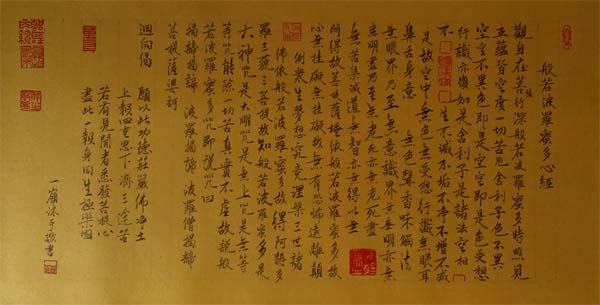 般若波羅蜜多心經
觀自在菩薩行深般若波羅蜜多時照見
五蘊皆空度一切苦厄舍利子色不異
空空不異色即是空空即是色受想
行識亦復如是舍利子是諸法空相
不生不滅不垢不淨不增不減
是故空中無色無受想行識無眼耳
鼻舌身意無色聲香味觸法
無眼界乃至無意識界無無明亦無
無明盡乃至無老死亦無老死盡
無苦集滅道無智亦無得以無
所得故菩提薩埵依般若波羅蜜多故
心無挂礙無挂礙故無有恐怖遠離顛
倒夢想究竟涅槃三世諸
佛依般若波羅蜜多故得阿耨多
羅三藐三菩提故知般若波羅蜜多是
大神咒是大明咒是無上咒是無等
等咒能除一切苦真實不虛故說般
若波羅蜜多咒即說咒曰
揭諦揭諦 波羅揭諦 波羅僧揭諦
菩提薩婆訶
迴向偈 願以此功德莊嚴佛淨土
上報四重恩下濟三途苦
若有見聞者悉發菩提心
盡此一報身同生極樂國
沐手敬書